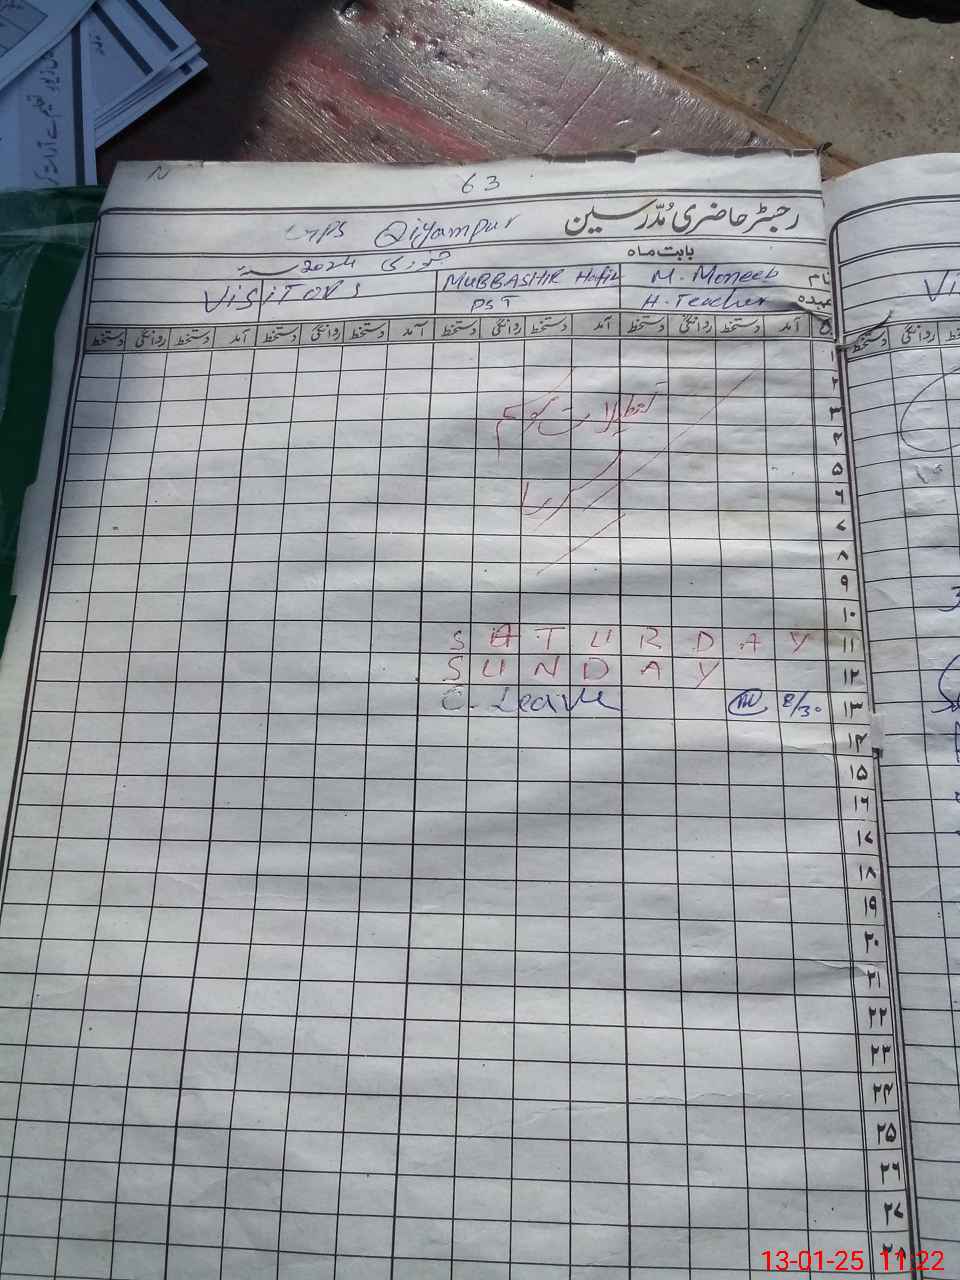 63
رجسٹر حاضری مُدّرسین
GPS Qiyampur
بابت ماہ
جنوری 2024
نام M. Moneeb MUBBASHIR Hafiz VISITORS
عہدہ H. Teacher PST
آمد دستخط روانگی دستخط آمد دستخط روانگی دستخط آمد دستخط روانگی دستخط آمد دستخط روانگی دستخط
۱
۲
۳ تعطیلات موسم
۴
۵
۶ سرما
۷
۸
۹
۱۰
۱۱ SATURDAY
۱۲ SUNDAY
۱۳ 8/30 C. Leave
۱۴
۱۵
۱۶
۱۷
۱۸
۱۹
۲۰
۲۱
۲۲
۲۳
۲۴
۲۵
۲۶
۲۷
۲۸
13-01-25 11:22